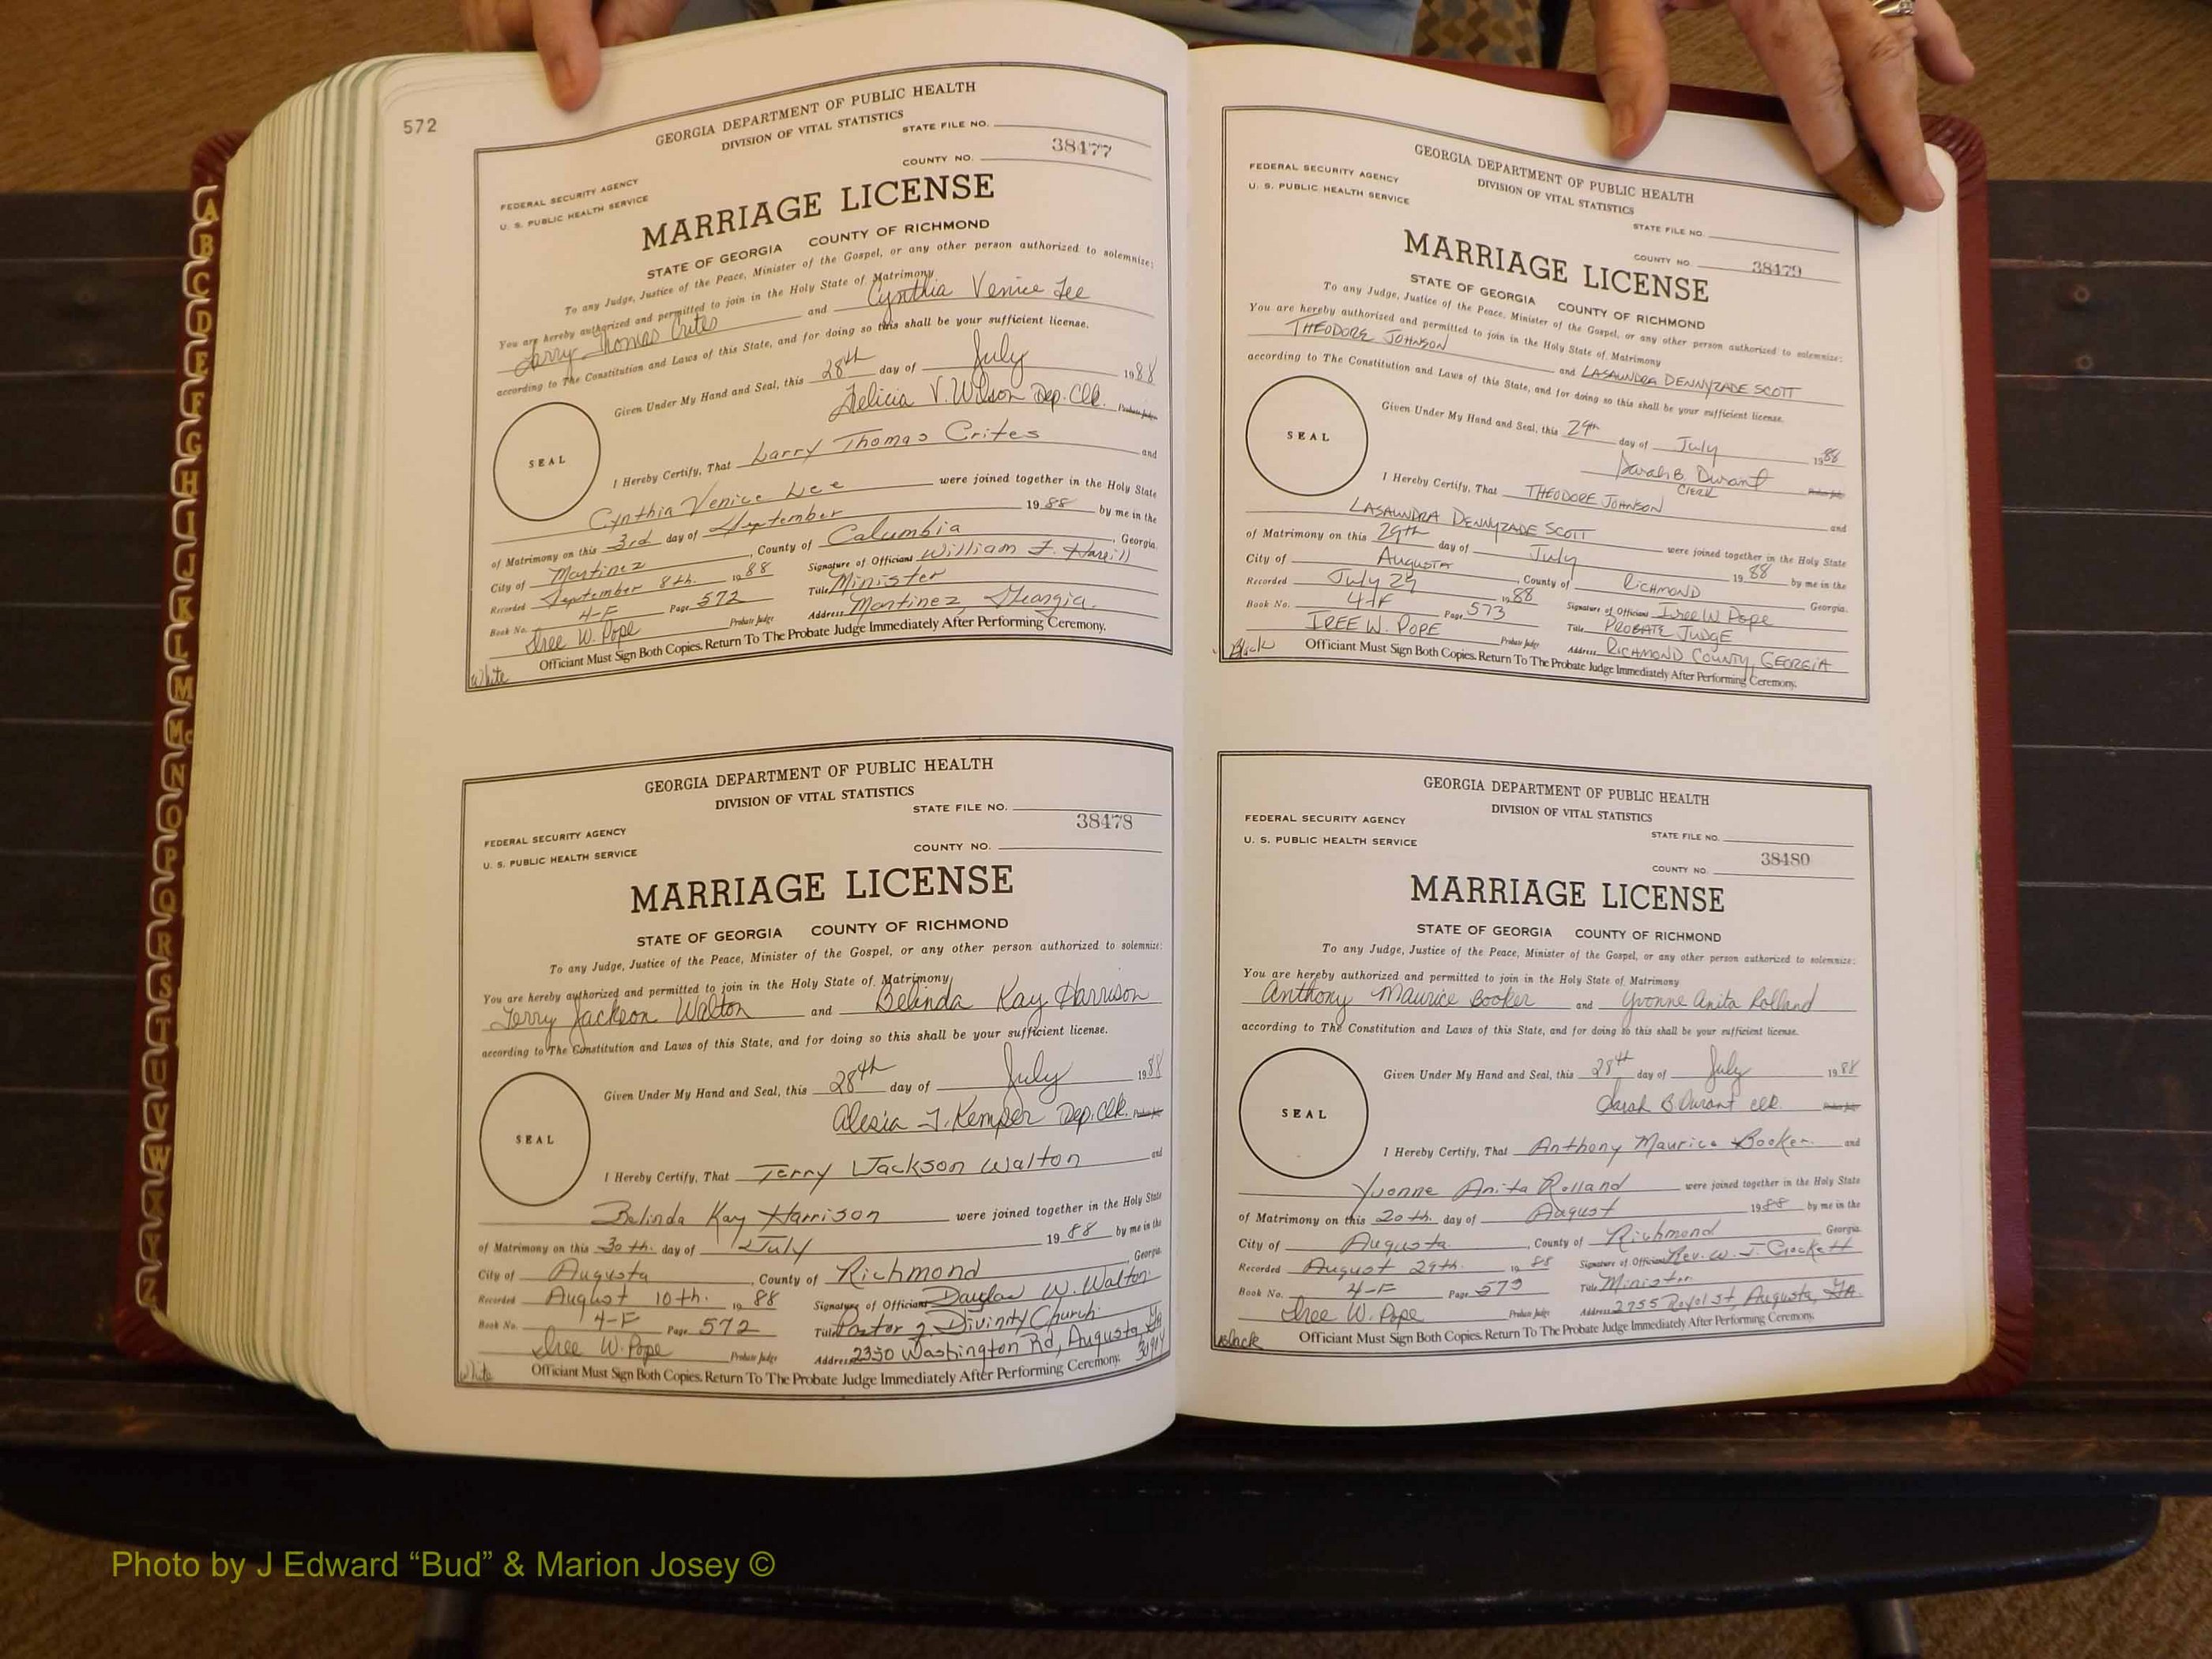 572
GEORGIA DEPARTMENT OF PUBLIC HEALTH
DIVISION OF VITAL STATISTICS
STATE FILE NO.
38477
COUNTY NO.
FEDERAL SECURITY AGENCY
U. S. PUBLIC HEALTH SERVICE
MARRIAGE LICENSE
STATE OF GEORGIA COUNTY OF RICHMOND
To any Judge, Justice of the Peace, Minister of the Gospel, or any other person authorized to solemnize:
You are hereby authorized and permitted to join in the Holy State of Matrimony
Larry Thomas Crites and Cynthia Venice Lee
according to The Constitution and Laws of this State, and for doing so this shall be your sufficient license.
Given Under My Hand and Seal, this 28th day of July 1988
Felicia V. Wilson Dep. Clk. Probate Judge
SEAL
I Hereby Certify, That Larry Thomas Crites and
Cynthia Venice Lee were joined together in the Holy State
of Matrimony on this 3rd day of September 1988 by me in the
City of Martinez, County of Columbia, Georgia.
Recorded September 8th. 1988 Signature of Officiant William F.
Book No. 4-F Page 572 Title Minister
Iree W. Pope Probate Judge Address Martinez, Georgia.
Officiant Must Sign Both Copies. Return To The Probate Judge Immediately After Performing Ceremony.
White
GEORGIA DEPARTMENT OF PUBLIC HEALTH
DIVISION OF VITAL STATISTICS
STATE FILE NO.
38478
COUNTY NO.
FEDERAL SECURITY AGENCY
U. S. PUBLIC HEALTH SERVICE
MARRIAGE LICENSE
STATE OF GEORGIA COUNTY OF RICHMOND
To any Judge, Justice of the Peace, Minister of the Gospel, or any other person authorized to solemnize:
You are hereby authorized and permitted to join in the Holy State of Matrimony
Terry Jackson Walton and Belinda Kay Harrison
according to The Constitution and Laws of this State, and for doing so this shall be your sufficient license.
Given Under My Hand and Seal, this 28th day of July 1988
Alesia J. Kemper Dep. Clk. Probate Judge
SEAL
I Hereby Certify, That Terry Jackson Walton and
Belinda Kay Harrison were joined together in the Holy State
of Matrimony on this 30th. day of July 1988 by me in the
City of Augusta, County of Richmond Georgia.
Recorded August 10th. 1988 Signature of Officiant Douglas W. Walton
Book No. 4-F Page 572 Title Pastor of Divinity Church
Iree W. Pope Probate Judge Address 2330 Washington Rd, Augusta, Ga 30904
Officiant Must Sign Both Copies. Return To The Probate Judge Immediately After Performing Ceremony.
White
GEORGIA DEPARTMENT OF PUBLIC HEALTH
DIVISION OF VITAL STATISTICS
STATE FILE NO.
FEDERAL SECURITY AGENCY
U. S. PUBLIC HEALTH SERVICE
COUNTY NO. 38479
MARRIAGE LICENSE
STATE OF GEORGIA COUNTY OF RICHMOND
To any Judge, Justice of the Peace, Minister of the Gospel, or any other person authorized to solemnize:
You are hereby authorized and permitted to join in the Holy State of Matrimony
THEODORE JOHNSON and LASAUNDRA DENNYZADE SCOTT
according to The Constitution and Laws of this State, and for doing so this shall be your sufficient license.
Given Under My Hand and Seal, this 29th day of July 1988
Sarah B. Durant
CLERK
SEAL
I Hereby Certify, That THEODORE JOHNSON and
LASAUNDRA DENNYZADE SCOTT were joined together in the Holy State
of Matrimony on this 29th day of July 1988 by me in the
City of AUGUSTA, County of RICHMOND Georgia.
Recorded July 29 1988 Signature of Officiant Iree W. Pope
Book No. 4-F Page 573 Title PROBATE JUDGE
IREE W. POPE Probate Judge Address RICHMOND COUNTY, GEORGIA
Officiant Must Sign Both Copies. Return To The Probate Judge Immediately After Performing Ceremony.
Black
GEORGIA DEPARTMENT OF PUBLIC HEALTH
DIVISION OF VITAL STATISTICS
FEDERAL SECURITY AGENCY
STATE FILE NO.
U. S. PUBLIC HEALTH SERVICE
38480
COUNTY NO.
MARRIAGE LICENSE
STATE OF GEORGIA COUNTY OF RICHMOND
To any Judge, Justice of the Peace, Minister of the Gospel, or any other person authorized to solemnize:
You are hereby authorized and permitted to join in the Holy State of Matrimony
Anthony Maurice Booker and Yvonne Anita Rolland
according to The Constitution and Laws of this State, and for doing so this shall be your sufficient license.
Given Under My Hand and Seal, this 28th day of July 1988
Sarah B. Durant clk.
SEAL
I Hereby Certify, That Anthony Maurice Booker and
Yvonne Anita Rolland were joined together in the Holy State
of Matrimony on this 20th. day of August 1988 by me in the
City of Augusta, County of Richmond Georgia.
Recorded August 29th. 1988 Signature of Officiant Rev. W. J. Crockett
Book No. 4-F Page 573 Title Minister
Iree W. Pope Probate Judge Address 2755 St, Augusta, GA.
Officiant Must Sign Both Copies. Return To The Probate Judge Immediately After Performing Ceremony.
Black
A
B
C
D
E
F
G
H
I
J
K
L
M
Mc
N
O
P
Q
R
S
T
U
V
W
X
Y
Z
Photo by J Edward “Bud” & Marion Josey ©